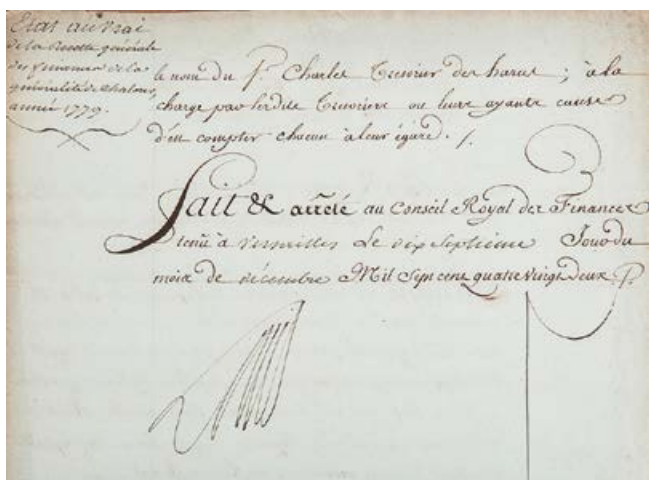 Etat au vrai
de la Recette générale
des finances de la
généralité de Chalons,
année 1779.
le nom du S.r Charles Tresorier des haras ; à la
charge par lesdits Tresoriers ou leurs ayants cause
d'en compter chacun à leur égard ./.
Fait & arrêté au Conseil Royal des Finances
tenu à Versailles Le dix septieme Jour du
mois de décembre Mil Sept cent quatre vingt deux ./.